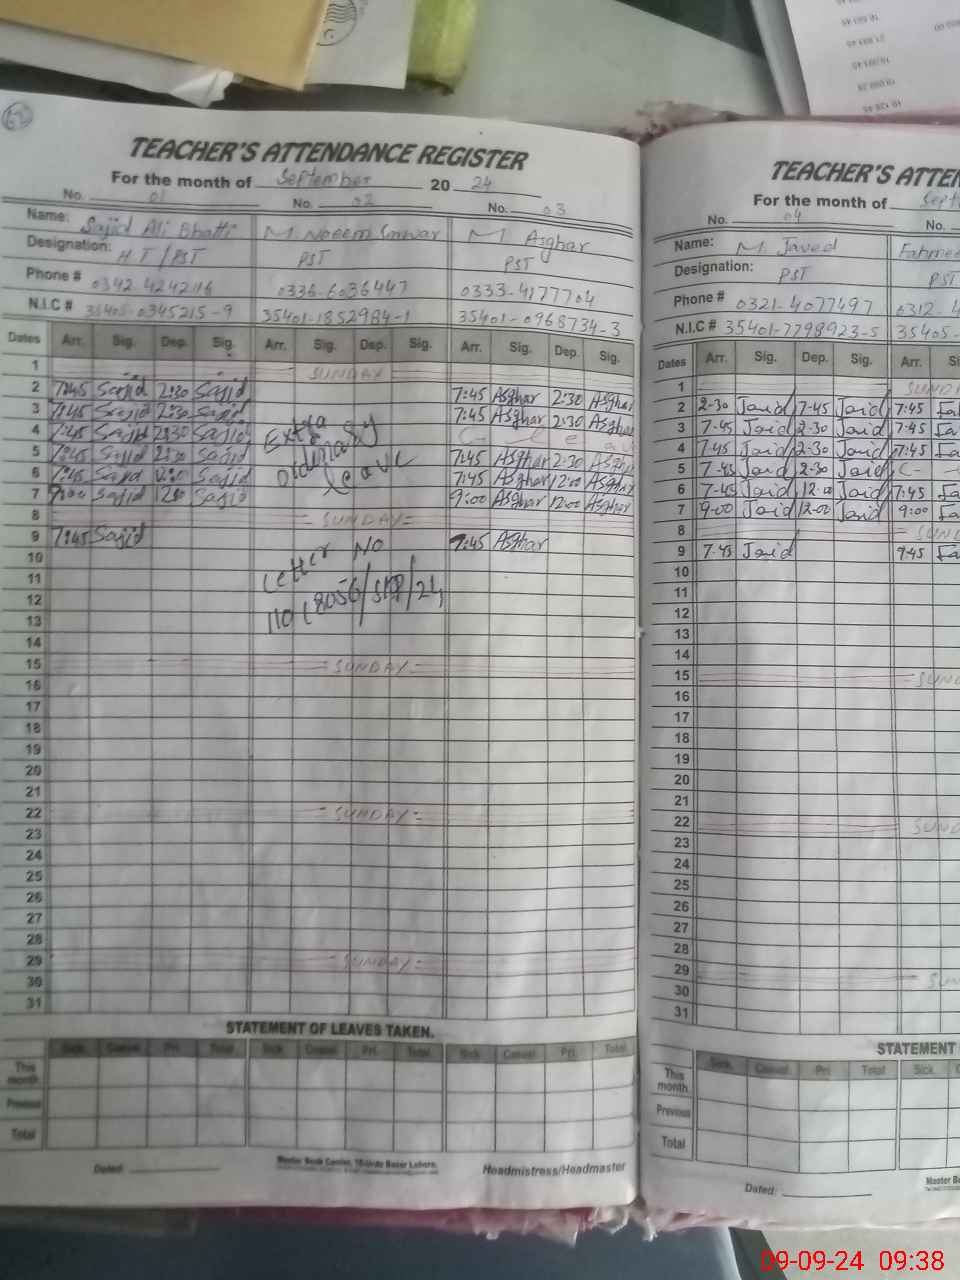 TEACHER'S ATTENDANCE REGISTER
For the month of September 20 24
No. 01 No. 02 No. 03
Name: Sajid Ali Bhatti M. Naeem Sarwar M. Asghar
Designation: HT/PST PST PST
Phone # 0336-6036447 0333-4177704
N.I.C # 35405-0345215-9 35401-1852984-1 35401-0968734-3
Dates Arr. Sig. Dep. Sig. Arr. Sig. Dep. Sig. Arr. Sig. Dep. Sig.
1 SUNDAY
2 7:45 Sajid 2:30 Sajid 7:45 Asghar 2:30 Asghar
3 7:45 Sajid 2:30 Sajid 7:45 Asghar 2:30 Asghar
4 7:45 Sajid 2:30 Sajid C
5 7:45 Sajid 2:30 Sajid 7:45 Asghar 2:30 Asghar
6 7:45 Sajid 12:00 Sajid 7:45 Asghar 12:00 Asghar
7 9:00 Sajid 12:00 Sajid 9:00 Asghar 12:00 Asghar
Extra
leave
8 = SUNDAY =
9 7:45 Sajid 7:45 Asghar
Letter No
10
11
12
13
14
15 = SUNDAY =
16
17
18
19
20
21
22 = SUNDAY =
23
24
25
26
27
28
29 = SUNDAY =
30
31
STATEMENT OF LEAVES TAKEN.
Sick. Casual. Pri. Total Sick. Casual. Pri. Total Sick. Casual. Pri. Total
This month
Previous
Total
Dated:
Master Book Center, Urdu Bazar Lahore.
Headmistress/Headmaster
TEACHER'S ATTEN
For the month of Sept
No. 04 No.
Name: M. Javed Fahmee
Designation: PST PST
Phone # 0321-4077497 0312-4
N.I.C # 35401-7798923-5 35405-
Dates Arr. Sig. Dep. Sig. Arr. Si
1 SUND
2 2-30 Javid 7-45 Javid 7:45 Fa
3 7-45 Javid 2-30 Javid 7:45 Fa
4 7-45 Javid 2-30 Javid 7:45 Fa
5 7-45 Javid 2-30 Javid C-
6 7-45 Javid 12-00 Javid 7:45 Fa
7 9-00 Javid 12-00 Javid 9:00 Fa
8 SUND
9 7-45 Javid Fa
10
11
12
13
14
15 =SUND
16
17
18
19
20
21
22 SUND
23
24
25
26
27
28
29 = SUN
30
31
STATEMENT
Sick. Casual. Pri Total Sick. Casual
This month
Previous
Total
Dated:
Master B
09-09-24 09:38